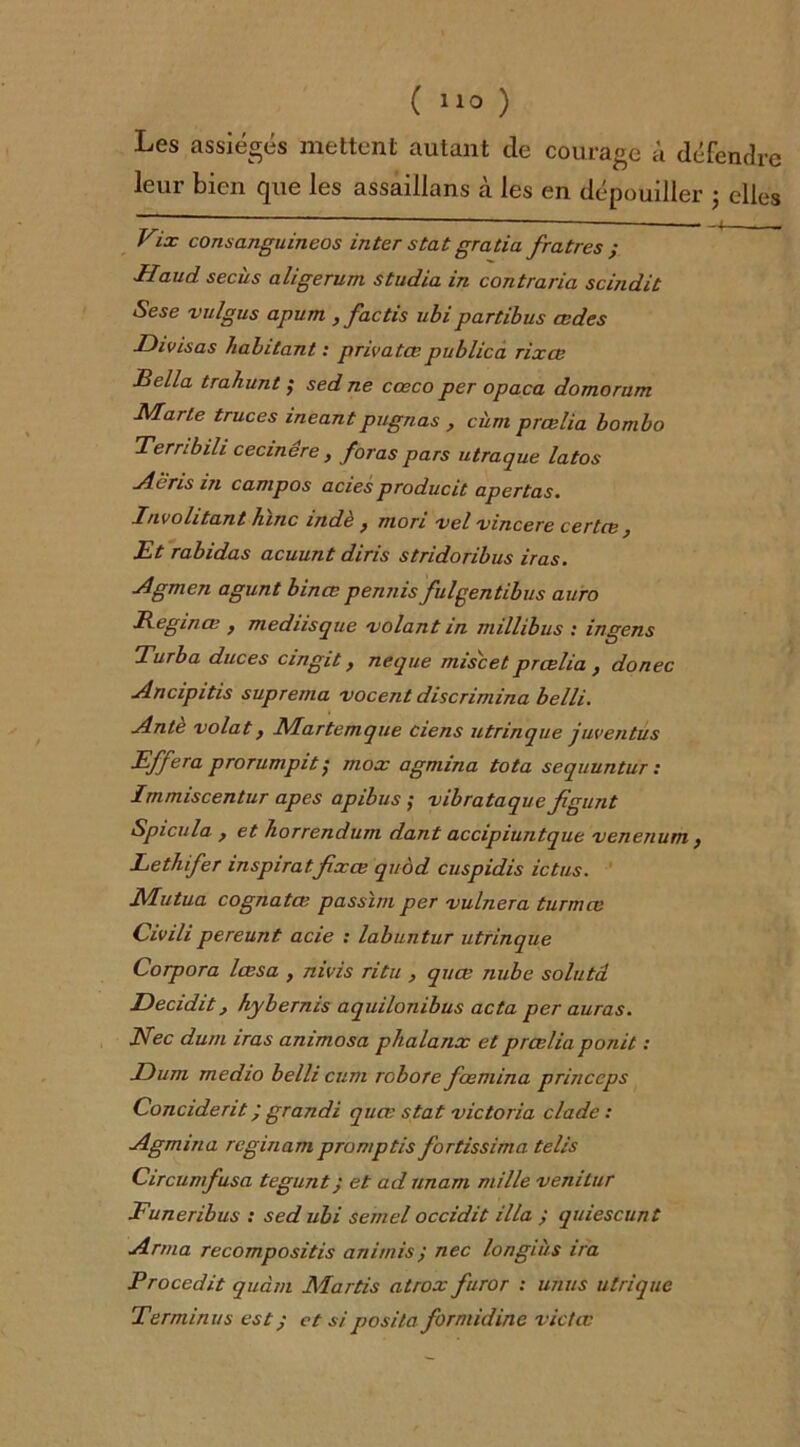 ( 110 )
Les assiégés mettent autant de courage à défendre
leur bien que les assaillans à les en dépouiller ; elles
Vix consanguineos inter stat gratia fratres ;
Haud secùs aligerum studia in contraria scindit
Sese vulgus apum , factis ubi partibus ædes
Divisas habitant : privatæ publicâ rixæ
Bella trahunt ; sed ne cæco per opaca domorum
Marte truces ineant pugnas , cùm prælia bombo
Terribili cecinêre , foras pars utraque latos
Aëris in campos acies producit apertas.
Involitant hìnc indè , mori vel vincere certæ ,
Et rabidas acuunt diris stridoribus iras.
Agmen agunt binæ pennis fulgentibus auro
Reginæ , mediisque volant in millibus : ingens
Turba duces cingit , neque miscet prælia , donec
Ancipitis suprema vocent discrimina belli.
Antè volat , Martemque ciens utrinque juventùs
Effera prorumpit ; mox agmina tota sequuntur :
Immiscentur apes apibus ; vibrataque figunt
Spicula , et horrendum dant accipiuntque venenum ,
Lethifer inspirat fixæ quòd cuspidis ictus.
Mutua cognatæ passìm per vulnera turmæ
Civili pereunt acie : labuntur utrinque
Corpora læsa , nivis ritu , quæ nube solutâ
Decidit , hybernis aquilonibus acta per auras.
Nec dum iras animosa phalanx et prælia ponit :
Dum medio belli cum robore fœmina princeps
Conciderit ; grandi quæ stat victoria clade :
Agmina reginam promptis fortissima telis
Circumfusa tegunt ; et ad unam mille venitur
Funeribus : sed ubi semel occidit illa ; quiescunt
Arma recompositis animis ; nec longiùs ira
Procedit quàm Martis atrox furor : unus utrique
Terminus est ; et si posita formidine victæ